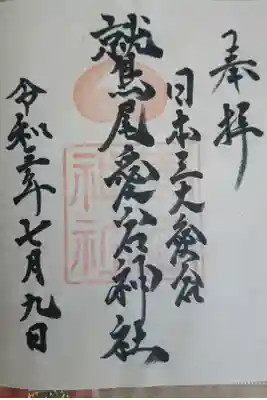 奉拝
日本三大愛宕
鷲尾愛宕神社
令和三年七月九日